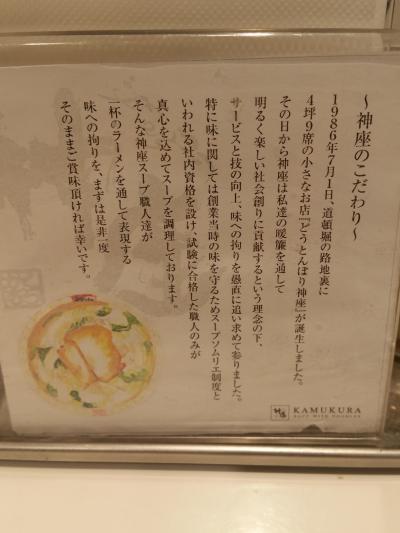 ～神座のこだわり～
1986年7月1日、道頓堀の路地裏に
4坪9席の小さなお店『どうとんぼり神座』が誕生しました。
その日から神座は私達の暖簾を通して
明るく楽しい社会創りに貢献するという理念の下、
サービスと技の向上、味への拘りを愚直に追い求めて参りました。
特に味に関しては創業当時の味を守るためスープソムリエ制度と
いわれる社内資格を設け、試験に合格した職人のみが
真心を込めてスープを調理しております。
そんな神座スープ職人達が
一杯のラーメンを通して表現する
味への拘りを、まずは是非一度
そのままご賞味頂ければ幸いです。
KAMUKURA
SOUP WITH NOODLES